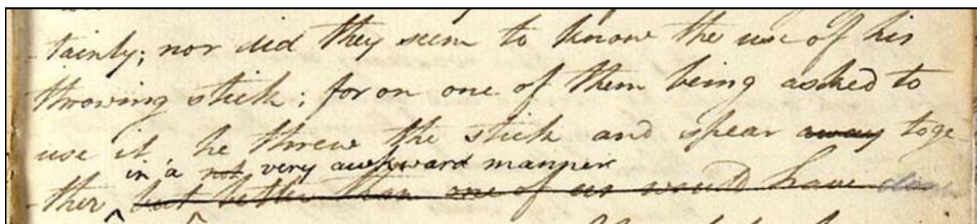 -tainly; nor did they seem to know the use of his
throwing stick; for on one of them being asked to
use it, he threw the stick and spear away toge
in a not very awkward manner
ther but better than one of us would have done